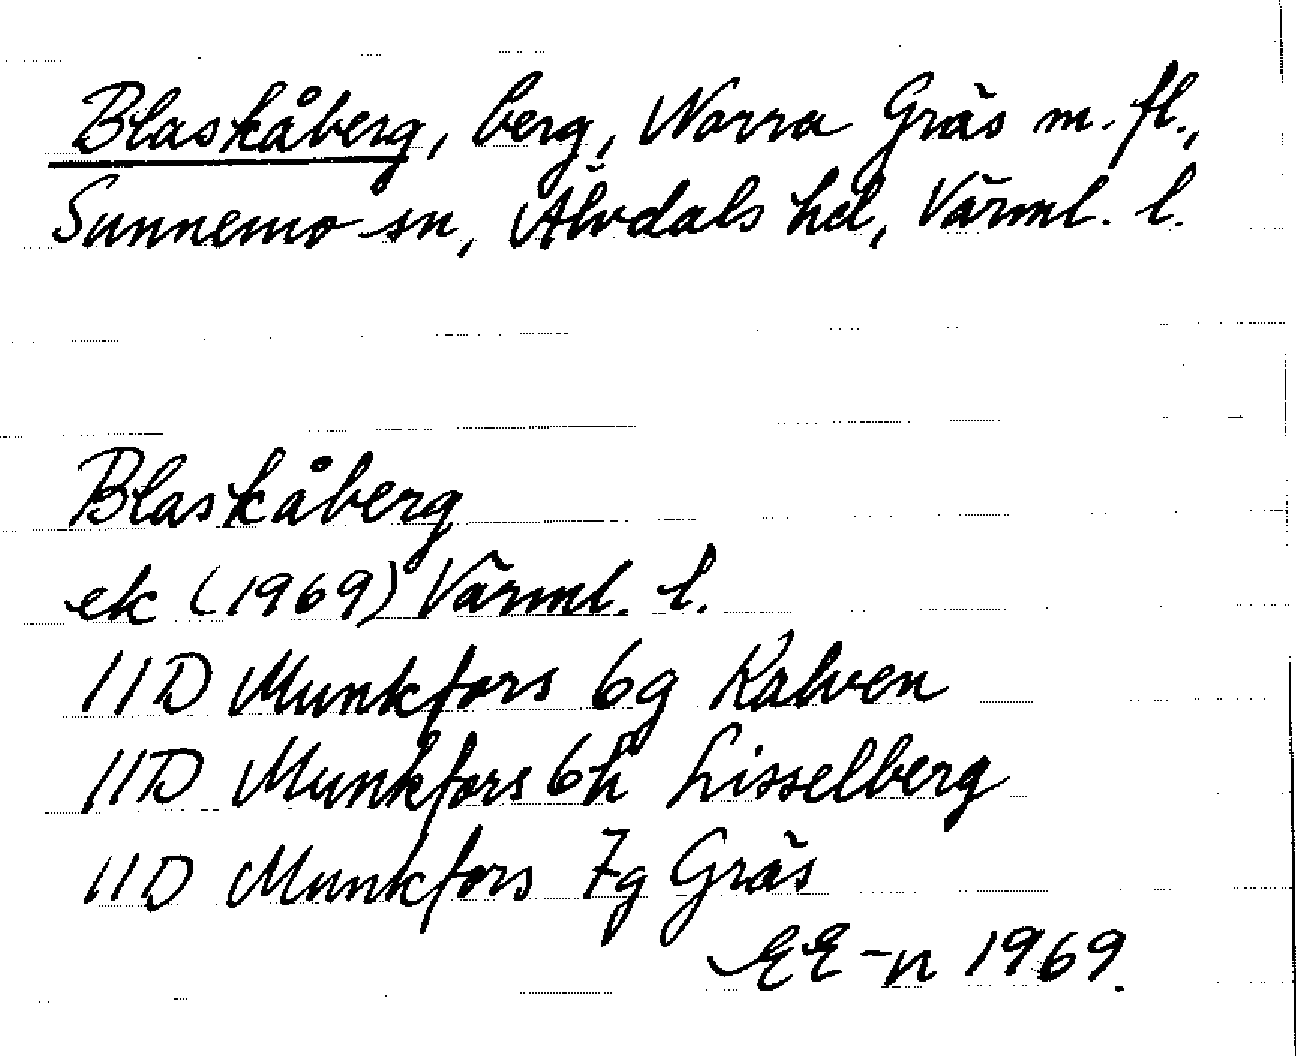 Blaskåberg, berg, Norra Gräs m. fl.,
Sunnemo sn, Älvdals hd, Värml. l.
Blaskåberg
ek (1969) Värml. l.
11D Munkfors 6g Kalven
11D Munkfors 6h Lisselberg
11D Munkfors 7g Gräs
EE-n 1969.